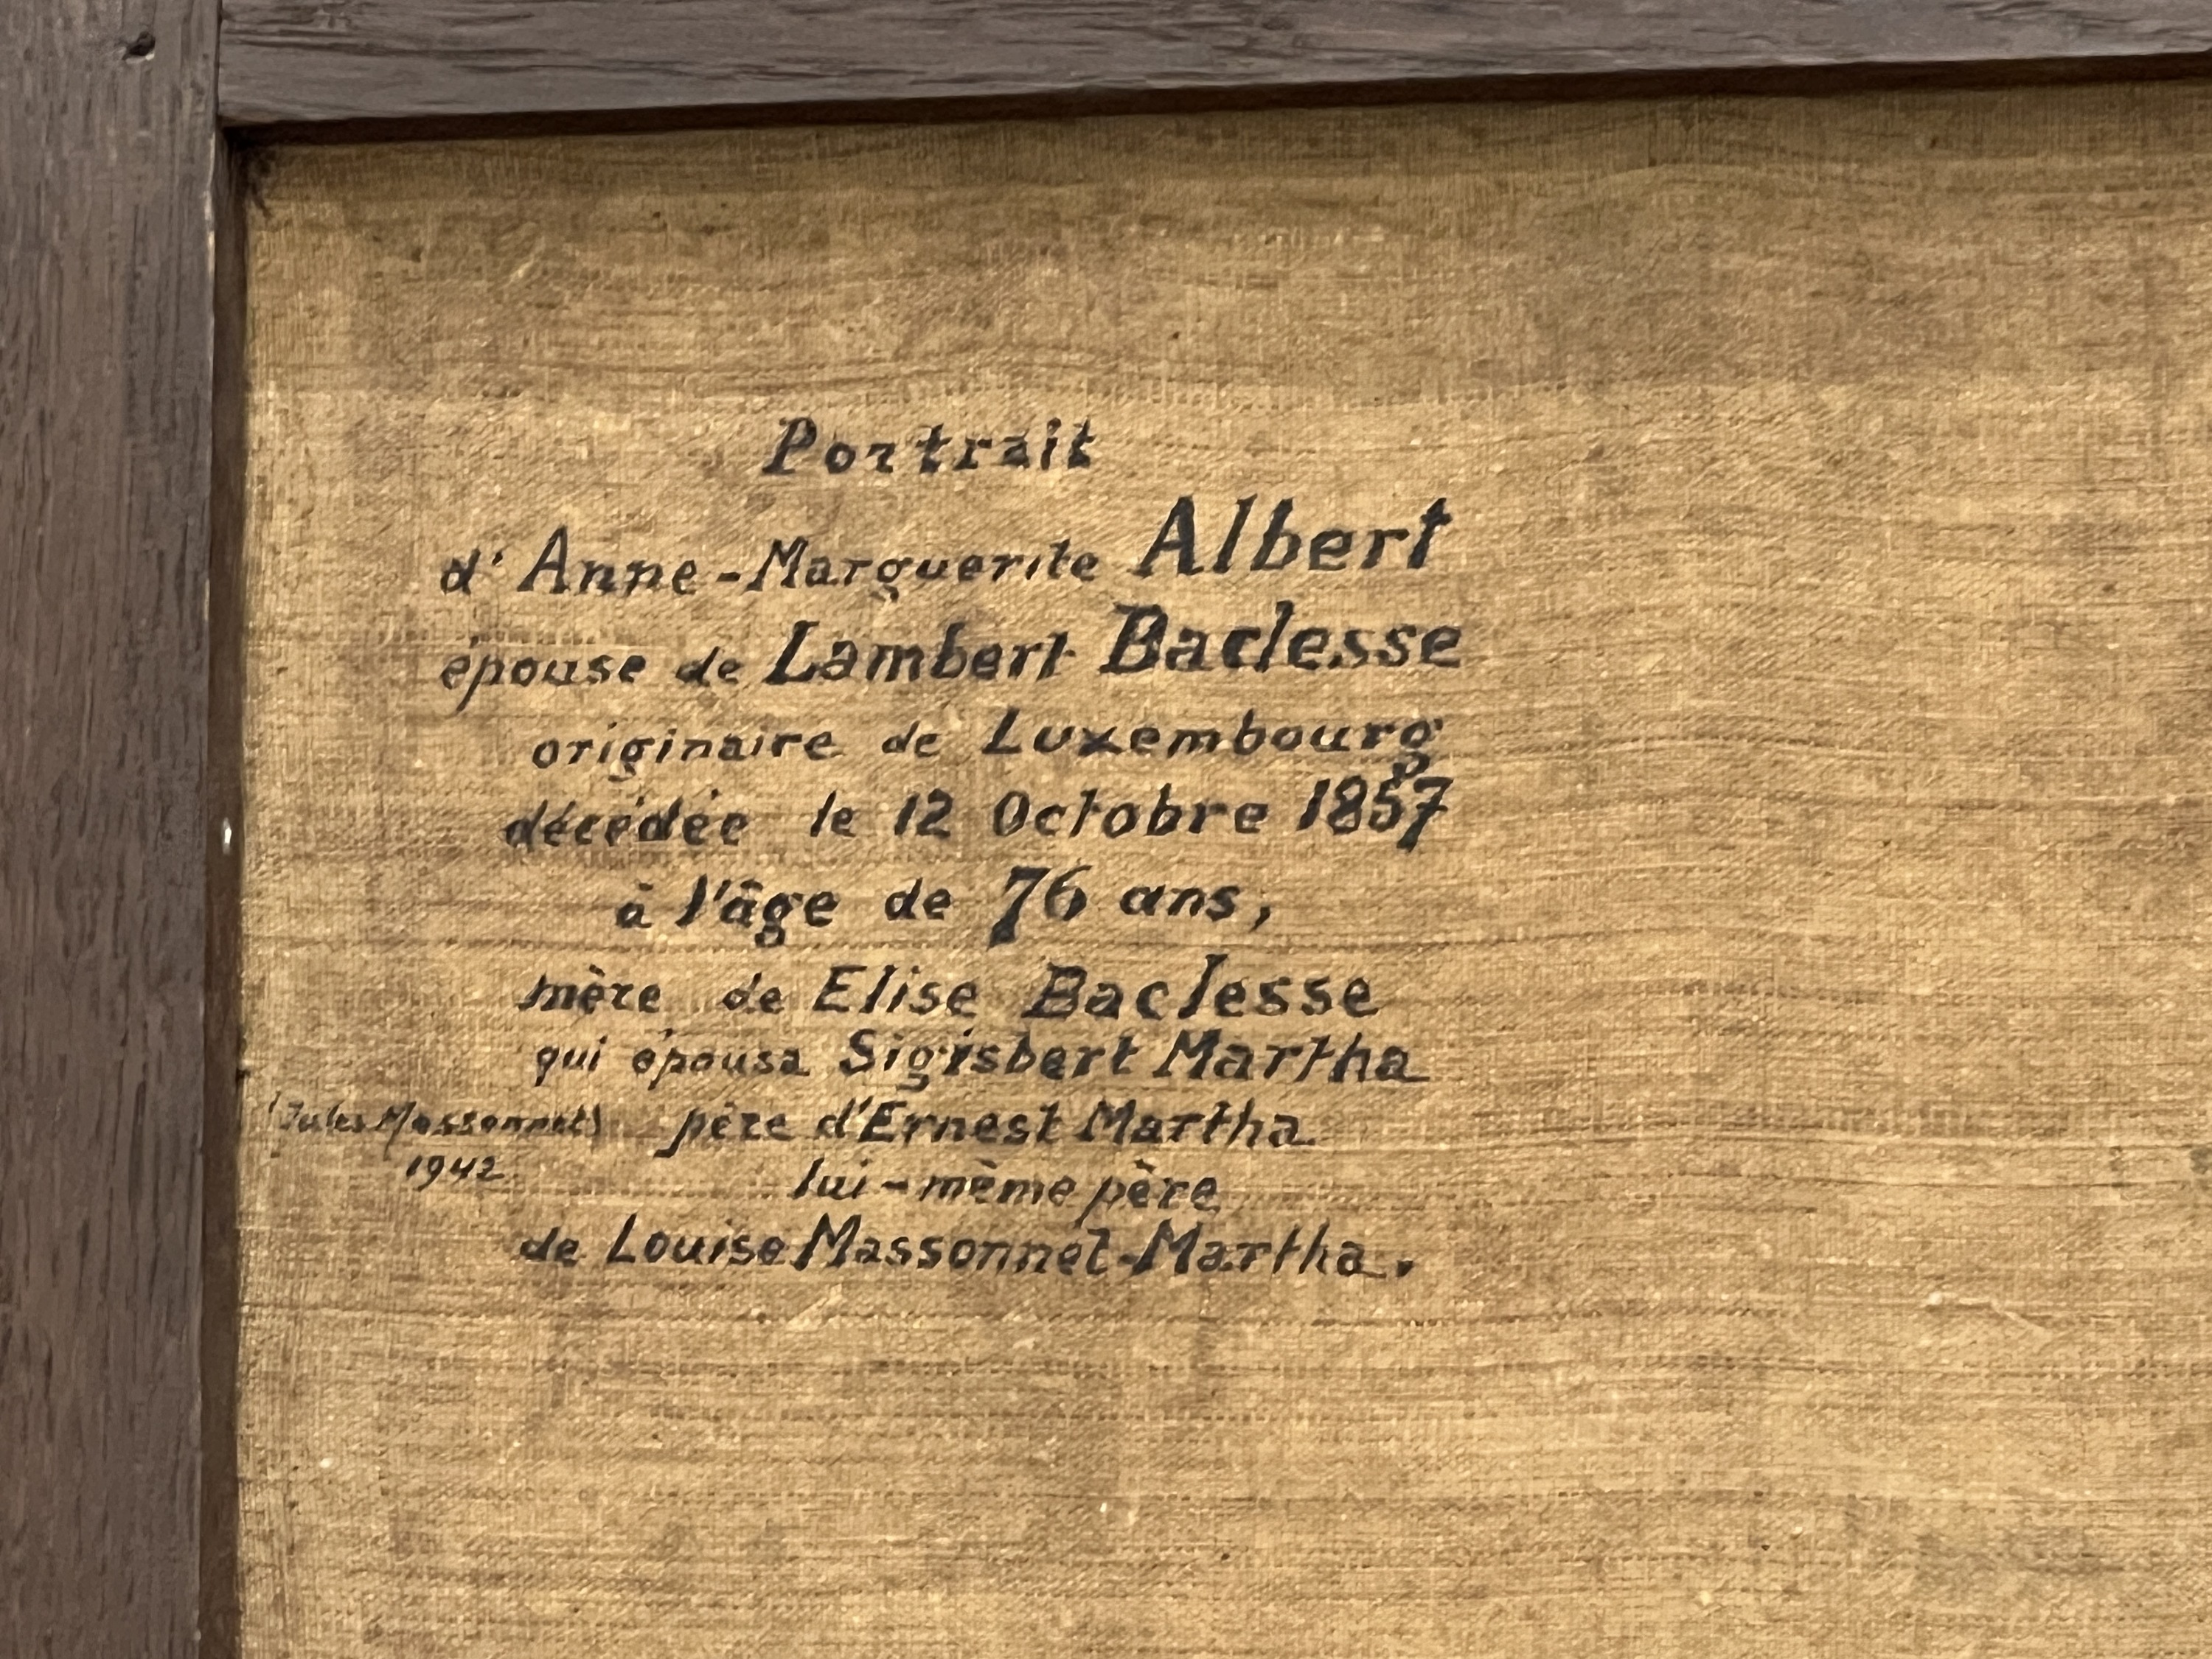 Portrait
d'Anne-Marguerite Albert
épouse de Lambert Baclesse
originaire de Luxembourg
décédée le 12 Octobre 1857
à l'âge de 76 ans,
mère de Elise Baclesse
qui épousa Sigisbert Martha
père d'Ernest Martha
lui-même père
de Louise Massonnet-Martha.
(Jules Massonnet)
1942